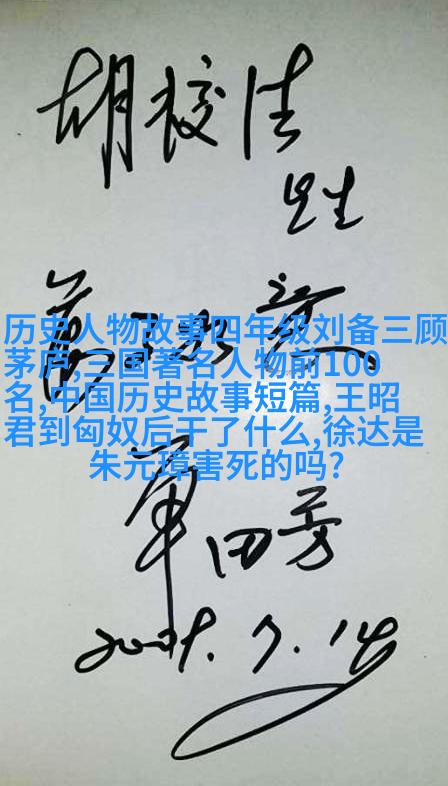 胡
历史人物故事四年级刘备三顾
茅庐,三国著名人物前100
名,中国历史故事短篇,王昭
君到匈奴后干了什么,徐达是
朱元璋害死的吗?
单田芳